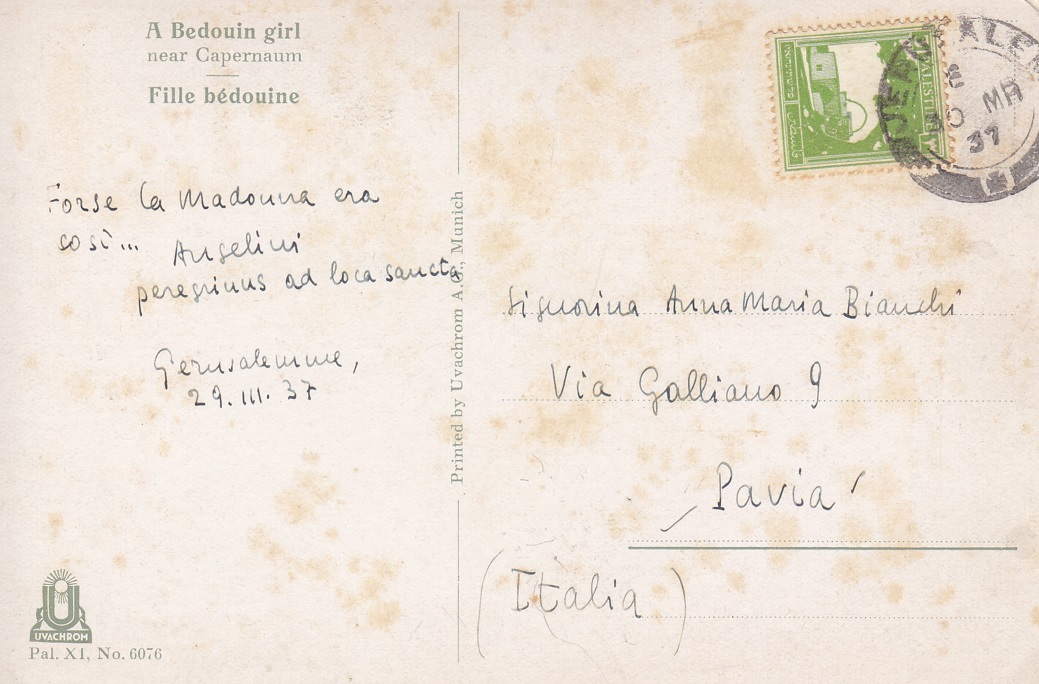 A Bedouin girl
near Capernaum
Fille bédouine
Forse la Madonna era
così...
Angelini
peregrinus ad loca sancta
Gerusalemme,
29. III. 37
UVACHROM
Pal. XI, No. 6076
Printed by Uvachrom A.G., Munich
PALESTINE
JERUSALEM
30 MR
37
Signorina Anna Maria Bianchi
Via Galliano 9
Pavia
(Italia)